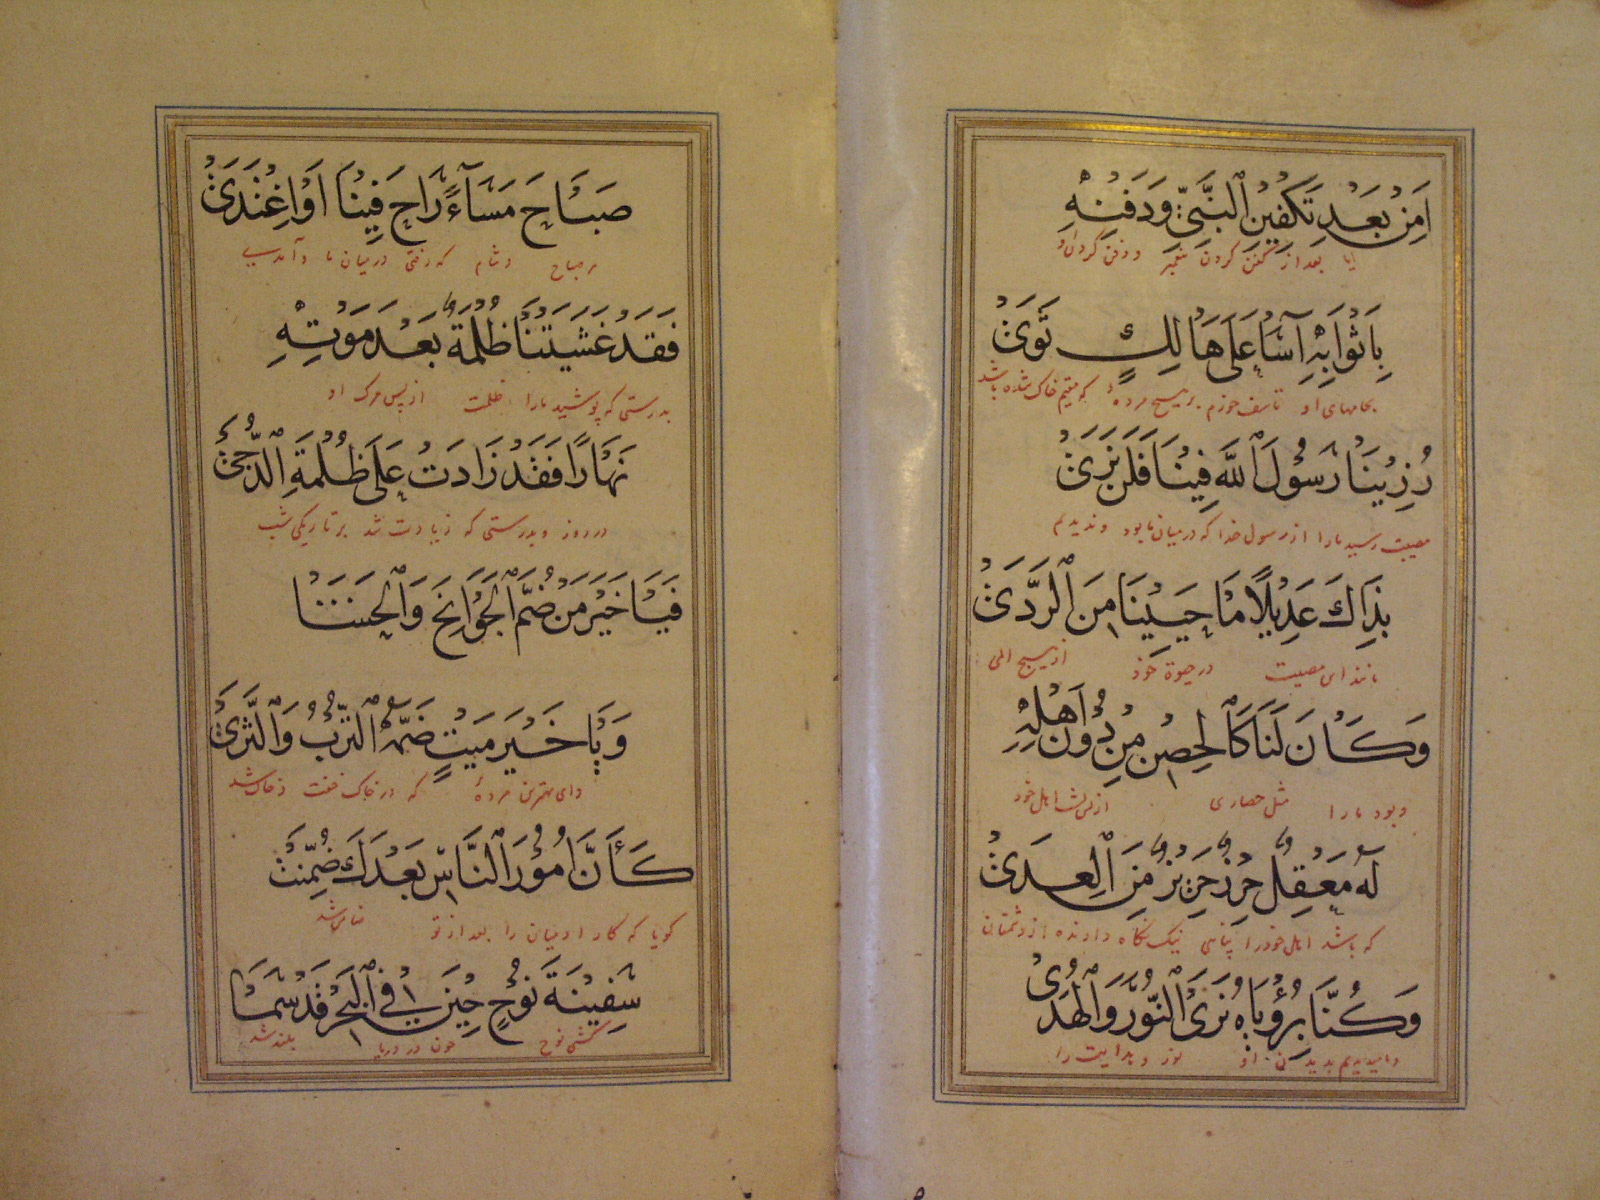 اَمِنْ بَعْدِ تَكْفِينِ ٱلنَّبِيِّ وَدَفْنِهِ
آیا بعد از کفن کردن پیغمبر و دفن کردن او
بِاَثْوَابِهِ آسَا عَلَى هَالِكٍ ثَوَىٰ
بجامهای او تاسف خورم بر هیچ مردهٔ که مقیم خاک شده باشد
رُزِيْنَا رَسُولَ ٱللَّهِ فِينَا فَلَنْ نَرَىٰ
مصیبت رسید ما را از رسول خدا که در میان ما بود و ندیدیم
بِذَاكَ عَدِيْلًا مَا حَيِيْنَا مِنَ ٱلرَّدَىٰ
مانند ای مصیبت در حیوة خود از هیچ المی
وَكَانَ لَنَا كَٱلْحِصْنِ مِنْ دُوْنِ اَهْلِهِ
و بود ما را مثل حصاری از برای اهل خود
لَهُ مَعْقِلٌ حِرْزٌ حَرِيْزٌ مِنَ ٱلْعِدَىٰ
که باشد اهل خود را پناهی نیک نگاه دارنده از دشمنان
وَكُنَّا بِرُؤْيَاهُ نَرَىٰ ٱلنُّوْرَ وَٱلْهُدَىٰ
و ما میدیدیم بدیدن او نور و هدایت را
صَبَاحَ مَسَآءً رَاحَ فِينَا اَوْ اِغْتَدَىٰ
هر صباح و شام که رفتی در میان ما و آمدیی
فَقَدْ غَشِيَتْنَا ظُلْمَةٌ بَعْدَ مَوْتِهِ
بدرستی که پوشید ما را ظلمت از پس مرگ او
نَهَارًا فَقَدْ زَادَتْ عَلَى ظُلْمَةِ الدُّجَىٰ
در روز و بدرستی که زیادت شد بر تاریکی شب
فَيَا خَيْرَ مَنْ ضَمَّ ٱلْجَوَانِحَ وَٱلْحَشَا
وَيَا خَيْرَ مَيْتٍ ضَمَّهُ ٱلتُّرْبُ وَٱلثَّرَىٰ
و ای بهترین مردهٔ که در خاک خفت و خاک شد
كَأَنَّ اُمُوْرَ ٱلنَّاسِ بَعْدَكَ ضُمِّنَتْ
کویا که کار ادمیان را بعد از تو ضامن شد
سَفِيْنَةَ نُوْحٍ حِيْنَ فِي ٱلْبَحْرِ قَدْ سَمَا
کشتی نوح چون در دریا بلند شد